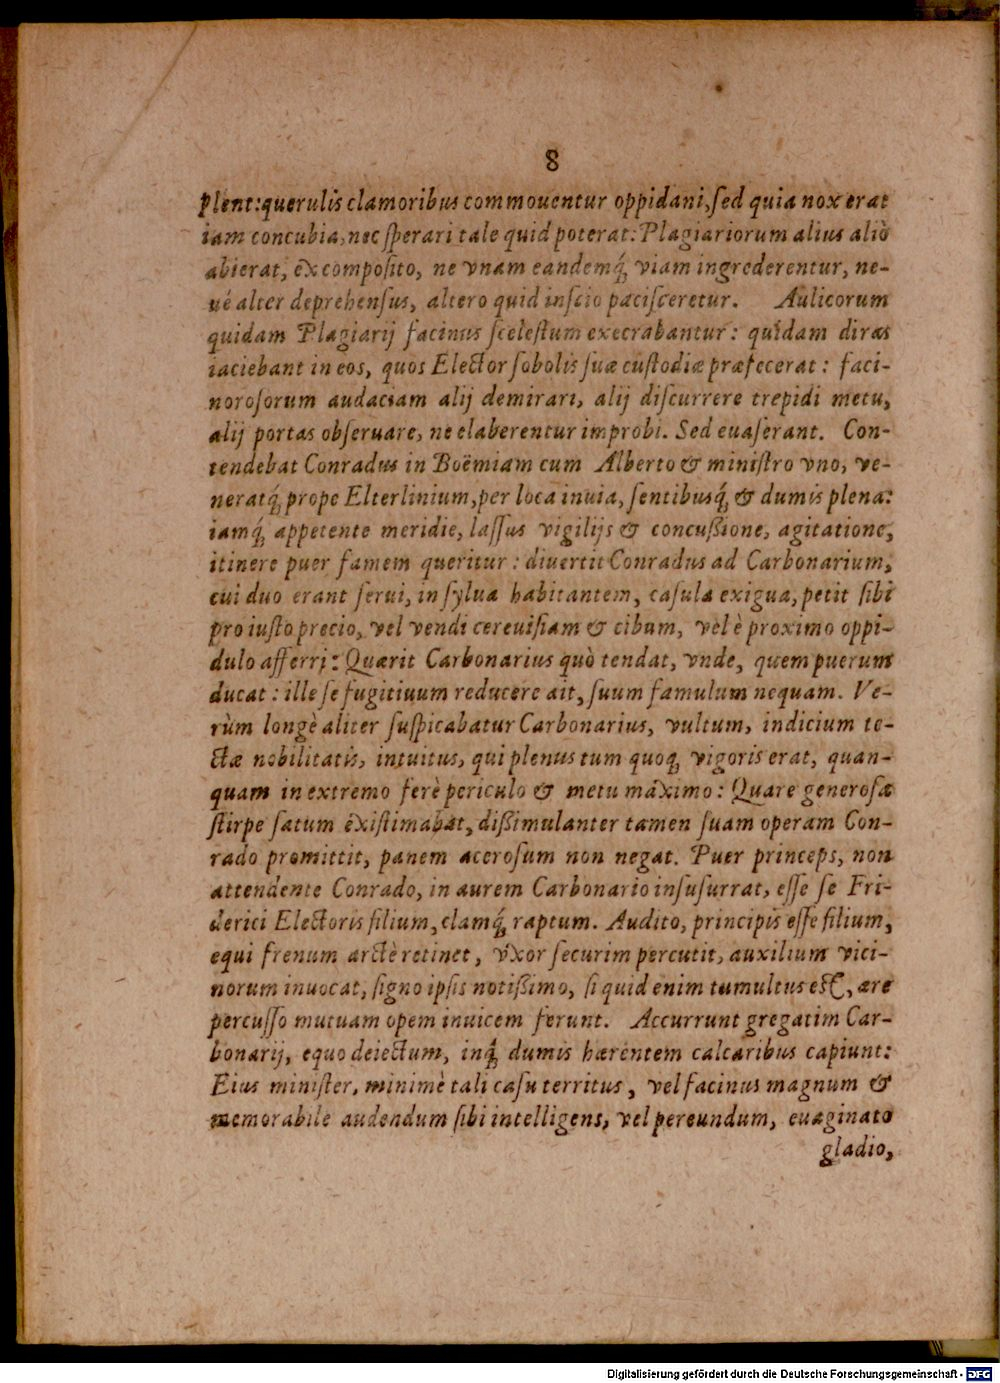 8
plent: querulis clamoribus commouentur oppidani, sed quia nox erat
iam concubia, nec sperari tale quid poterat: Plagiariorum alius aliò
abierat, ex composito, ne vnam eandemq́; viam ingrederentur, ne-
ué alter deprehensus, altero quid inscio pacisceretur. Aulicorum
quidam Plagiarij facinus scelestum execrabantur: quidam diras
iaciebant in eos, quos Elector sobolis suæ custodiæ præfecerat: faci-
norosorum audaciam alij demirari, alij discurrere trepidi metu,
alij portas obseruare, ne elaberentur improbi. Sed euaserant. Con-
tendebat Conradus in Boëmiam cum Alberto & ministro vno, ve-
neratq́; prope Elterlinium, per loca inuia, sentibusq́; & dumis plena:
iamq́; appetente meridie, lassus vigilijs & concußione, agitatione,
itinere puer famem queritur: diuertit Conradus ad Carbonarium,
cui duo erant serui, in sylua habitantem, casula exigua, petit sibi
pro iusto precio, vel vendi cereuisiam & cibum, vel è proximo oppi-
dulo afferri: Quærit Carbonarius quò tendat, vnde, quem puerum
ducat: ille se fugitiuum reducere ait, suum famulum nequam. Ve-
rùm longè aliter suspicabatur Carbonarius, vultum, indicium te-
ctæ nobilitatis, intuitus, qui plenus tum quoq; vigoris erat, quan-
quam in extremo ferè periculo & metu máximo: Quare generosa
stirpe satum existimabat, dißimulanter tamen suam operam Con-
rado promittit, panem acerosum non negat. Puer princeps, non
attendente Conrado, in aurem Carbonario insusurrat, esse se Fri-
derici Electoris filium, clamq́; raptum. Audito, principis esse filium,
equi frenum arctè retinet, vxor securim percutit, auxilium vici-
norum inuocat, signo ipsis notißimo, si quid enim tumultus est, ære
percusso mutuam opem inuicem ferunt. Accurrunt gregatim Car-
bonarij, equo deiectum, inq́; dumis hærentem calcaribus capiunt:
Eius minister, minimè tali casu territus, vel facinus magnum &
memorabile audendum sibi intelligens, vel pereundum, euaginato
gladio,
Digitalisierung gefördert durch die Deutsche Forschungsgemeinschaft - DFG